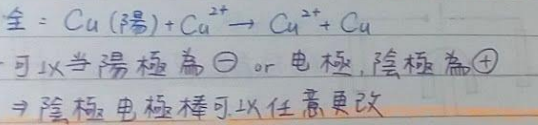 全：Cu(陽)+Cu²⁺→ Cu²⁺+Cu
可以当陽極為⊖ or 电極，陰極為⊕
⇒陰極电極棒可以任意更改